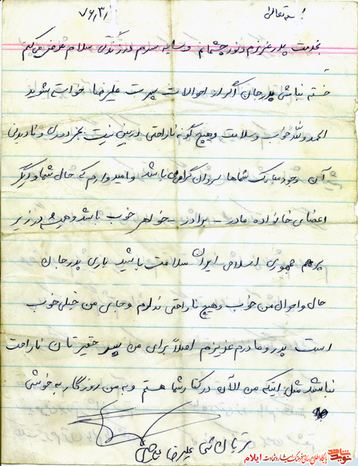 بسمه تعالی
۷۶/۳/۱
خدمت پدر عزیزم و نور چشمانم و سایه سرم در زندگی سلام عرض می کنم
خسته نباشی پدر جان اگر از احوالات پسرت علیرضا خواسته باشید
الحمدوالله خوب و سلامت و هیچ گونه ناراحتی در بین نیست بجز دوری و نادیدن
آن وجود مبارک شماها سروران گرامی باشد و امیدوارم که حال شما و دیگر
اعضای خانواده مادر - برادر - خواهر خوب باشد و همیشه در زیر
پرچم جمهوری اسلامی ایران سلامت باشید باری پدر جان
حال و احوال من خوب و هیچ ناراحتی ندارم و جای من خیلی خوب
است پدر و مادر عزیزم اصلاً برای من پسر حقیرتان ناراحت
نباشید مثل اینکه من الان در کنار شما هستم و به من روزگار به خوشی
قربان شما علیرضا
ایلام